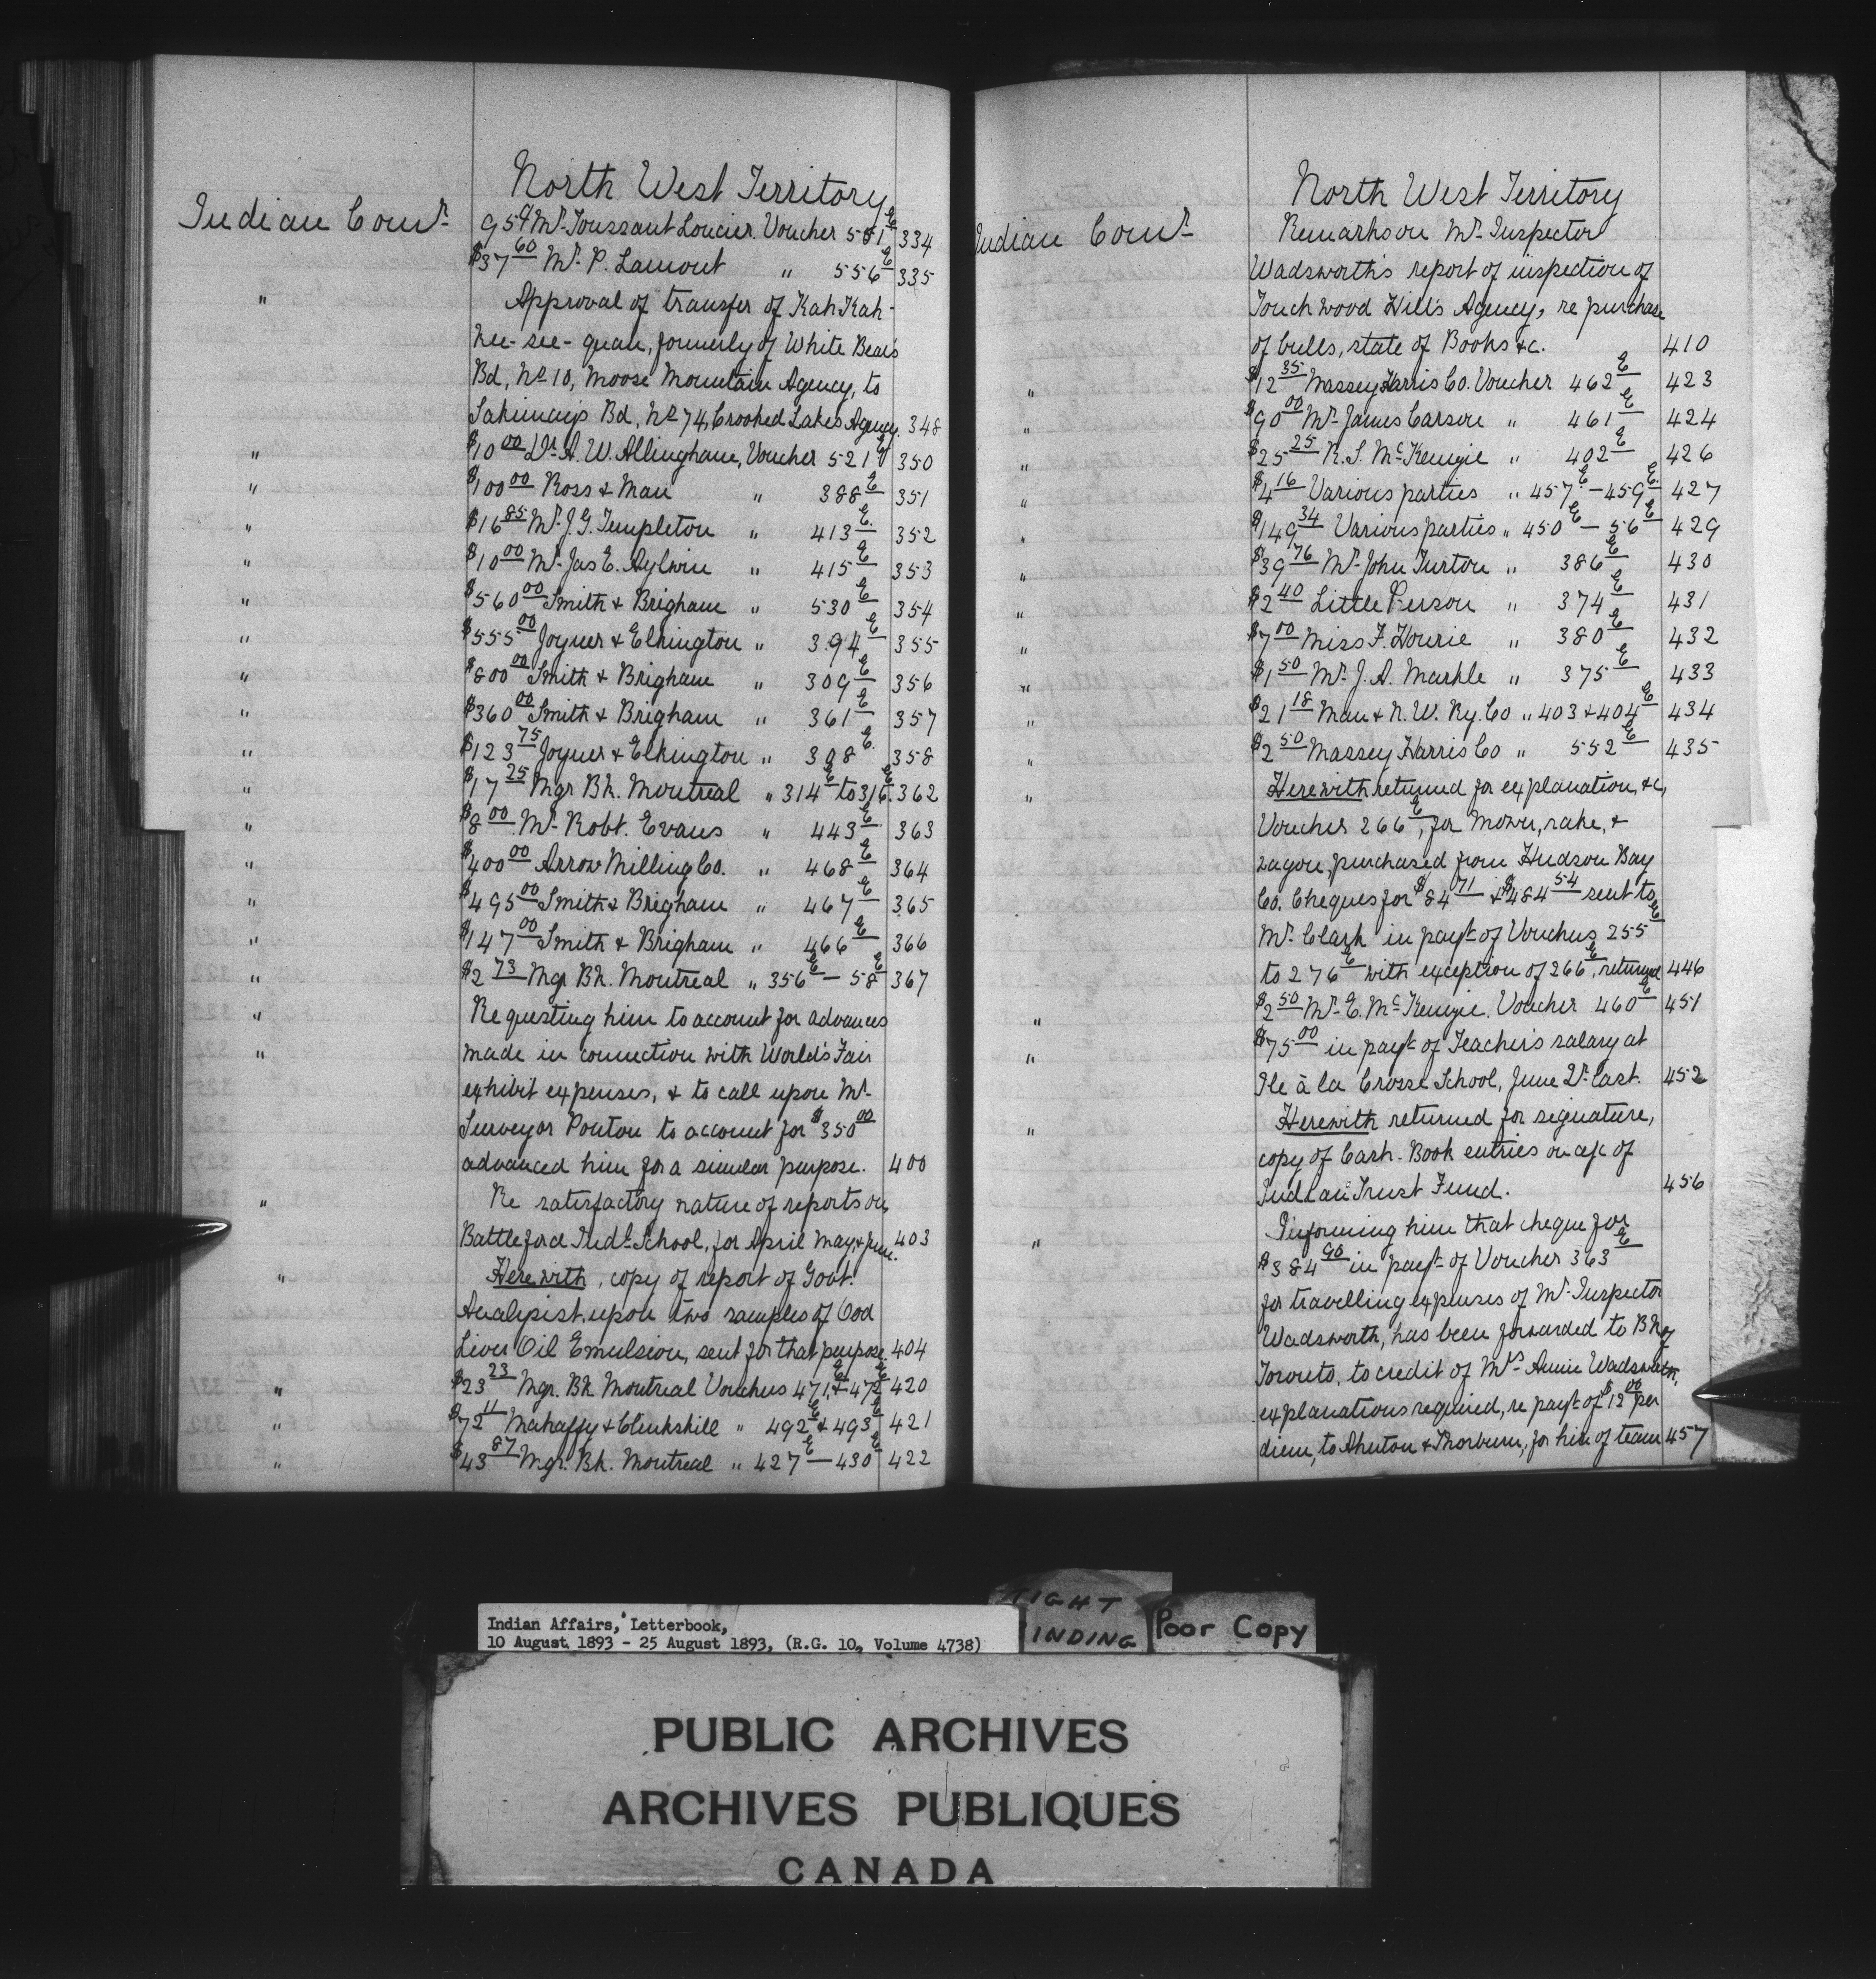 North West Territory
Indian Comr. 9 59 Mr. Toussaint Loucier. Voucher 551 E 334
$37 60 Mr. P. Lamont " 556 E 335
" Approval of transfer of Kah Kah-
nee-see-quan, formerly of White Bear's
Bd, No 10, Moose Mountain Agency, to
Sakimay's Bd, No 74, Crooked Lakes Agency. 348
" $10 00 Dr. A. W. Allingham, Voucher 521 E 350
" $100 00 Ross & Man " 388 E 351
" $16 85 Mr. J. G. Templeton " 413 E. 352
" $10 00 Mr. Jas E. Aylwin " 415 E 353
" $560 00 Smith & Brigham " 530 E 354
" $555 00 Joyner & Elkington " 394 E 355
" $800 00 Smith & Brigham " 309 E 356
" $360 00 Smith & Brigham " 361 E 357
" $123 75 Joyner & Elkington " 308 E. 358
" $17 25 Mgr Bk. Montreal " 314 E to 316 E. 362
" $8 00 Mr. Robt. Evans " 443 E 363
" $400 00 Arrow Milling Co. " 468 E 364
" $495 00 Smith & Brigham " 467 E 365
" $147 00 Smith & Brigham " 466 E 366
" $2 73 Mgr Bk. Montreal " 356 E — 58 E 367
" Requesting him to account for advances
" made in connection with World's Fair
exhibit expenses, & to call upon Mr.
Surveyor Ponton to account for $350 00
advanced him for a similar purpose. 400
" Re satisfactory nature of reports on
Battleford Indl. School, for April May, & June. 403
" Herewith, copy of report of Govt.
Analyist, upon two samples of Cod
Liver Oil Emulsion, sent for that purpose. 404
" $23 23 Mgr. Bk Montreal Vouchers 471 E, & 472 E 420
" $72 11 Mahaffy & Clinkskill " 492 E & 493 E 421
" $43 87 Mgr. Bk. Montreal " 427 E — 430 E 422
North West Territory
Indian Comr. Remarks on Mr. Inspector
Wadsworth's report of inspection of
Touchwood Hill's Agency, re purchase
of bulls, state of Books &c. 410
" $12 35 Massey Harris Co. Voucher 462 E 423
" $90 00 Mr. James Carson " 461 E 424
" $25 25 R. S. McKenzie " 402 E 426
" $4 16 Various parties " 457 E — 459 E. 427
" $149 34 Various parties " 450 E — 56 E 429
" $39 76 Mr. John Turton " 386 E 430
" $2 40 Little Person " 374 E 431
" $7 00 Miss F. Hourie " 380 E 432
" $1 50 Mr. J. A. Markle " 375 E 433
" $21 18 Man & N. W. Ry. Co " 403 & 404 E 434
" $2 50 Massey Harris Co " 552 E 435
" Herewith returned for explanation, &c,
Voucher 266 E, for Mower, rake, &
wagon, purchased from Hudson Bay
Co. Cheques for $84 71 & $484 54 sent to
Mr. Clark in payt. of Vouchers 255 E
to 276 E with exception of 266 E, returned 446
" $2 50 Mr. E. McKenzie. Voucher 460 E 451
" $75 00 in payt. of Teacher's salary at
Ile à la Crosse School, June Qr. last. 452
" Herewith returned for signature,
copy of Cash. Book entries on a/c of
Indian Trust Fund. 456
" Informing him that cheque for
$384 90 in payt. of Voucher 363 E
for travelling expenses of Mr. Inspector
Wadsworth, has been forwarded to Bk of
Toronto, to credit of Mrs Annie Wadsworth,
explanations required, re payt. of $12 00 per
diem, to & Thorburn, for hire of team 457
Indian Affairs, Letterbook,
10 August 1893 - 25 August 1893, (R.G. 10, Volume 4738)
TIGHT
BINDING
Poor Copy
PUBLIC ARCHIVES
ARCHIVES PUBLIQUES
CANADA